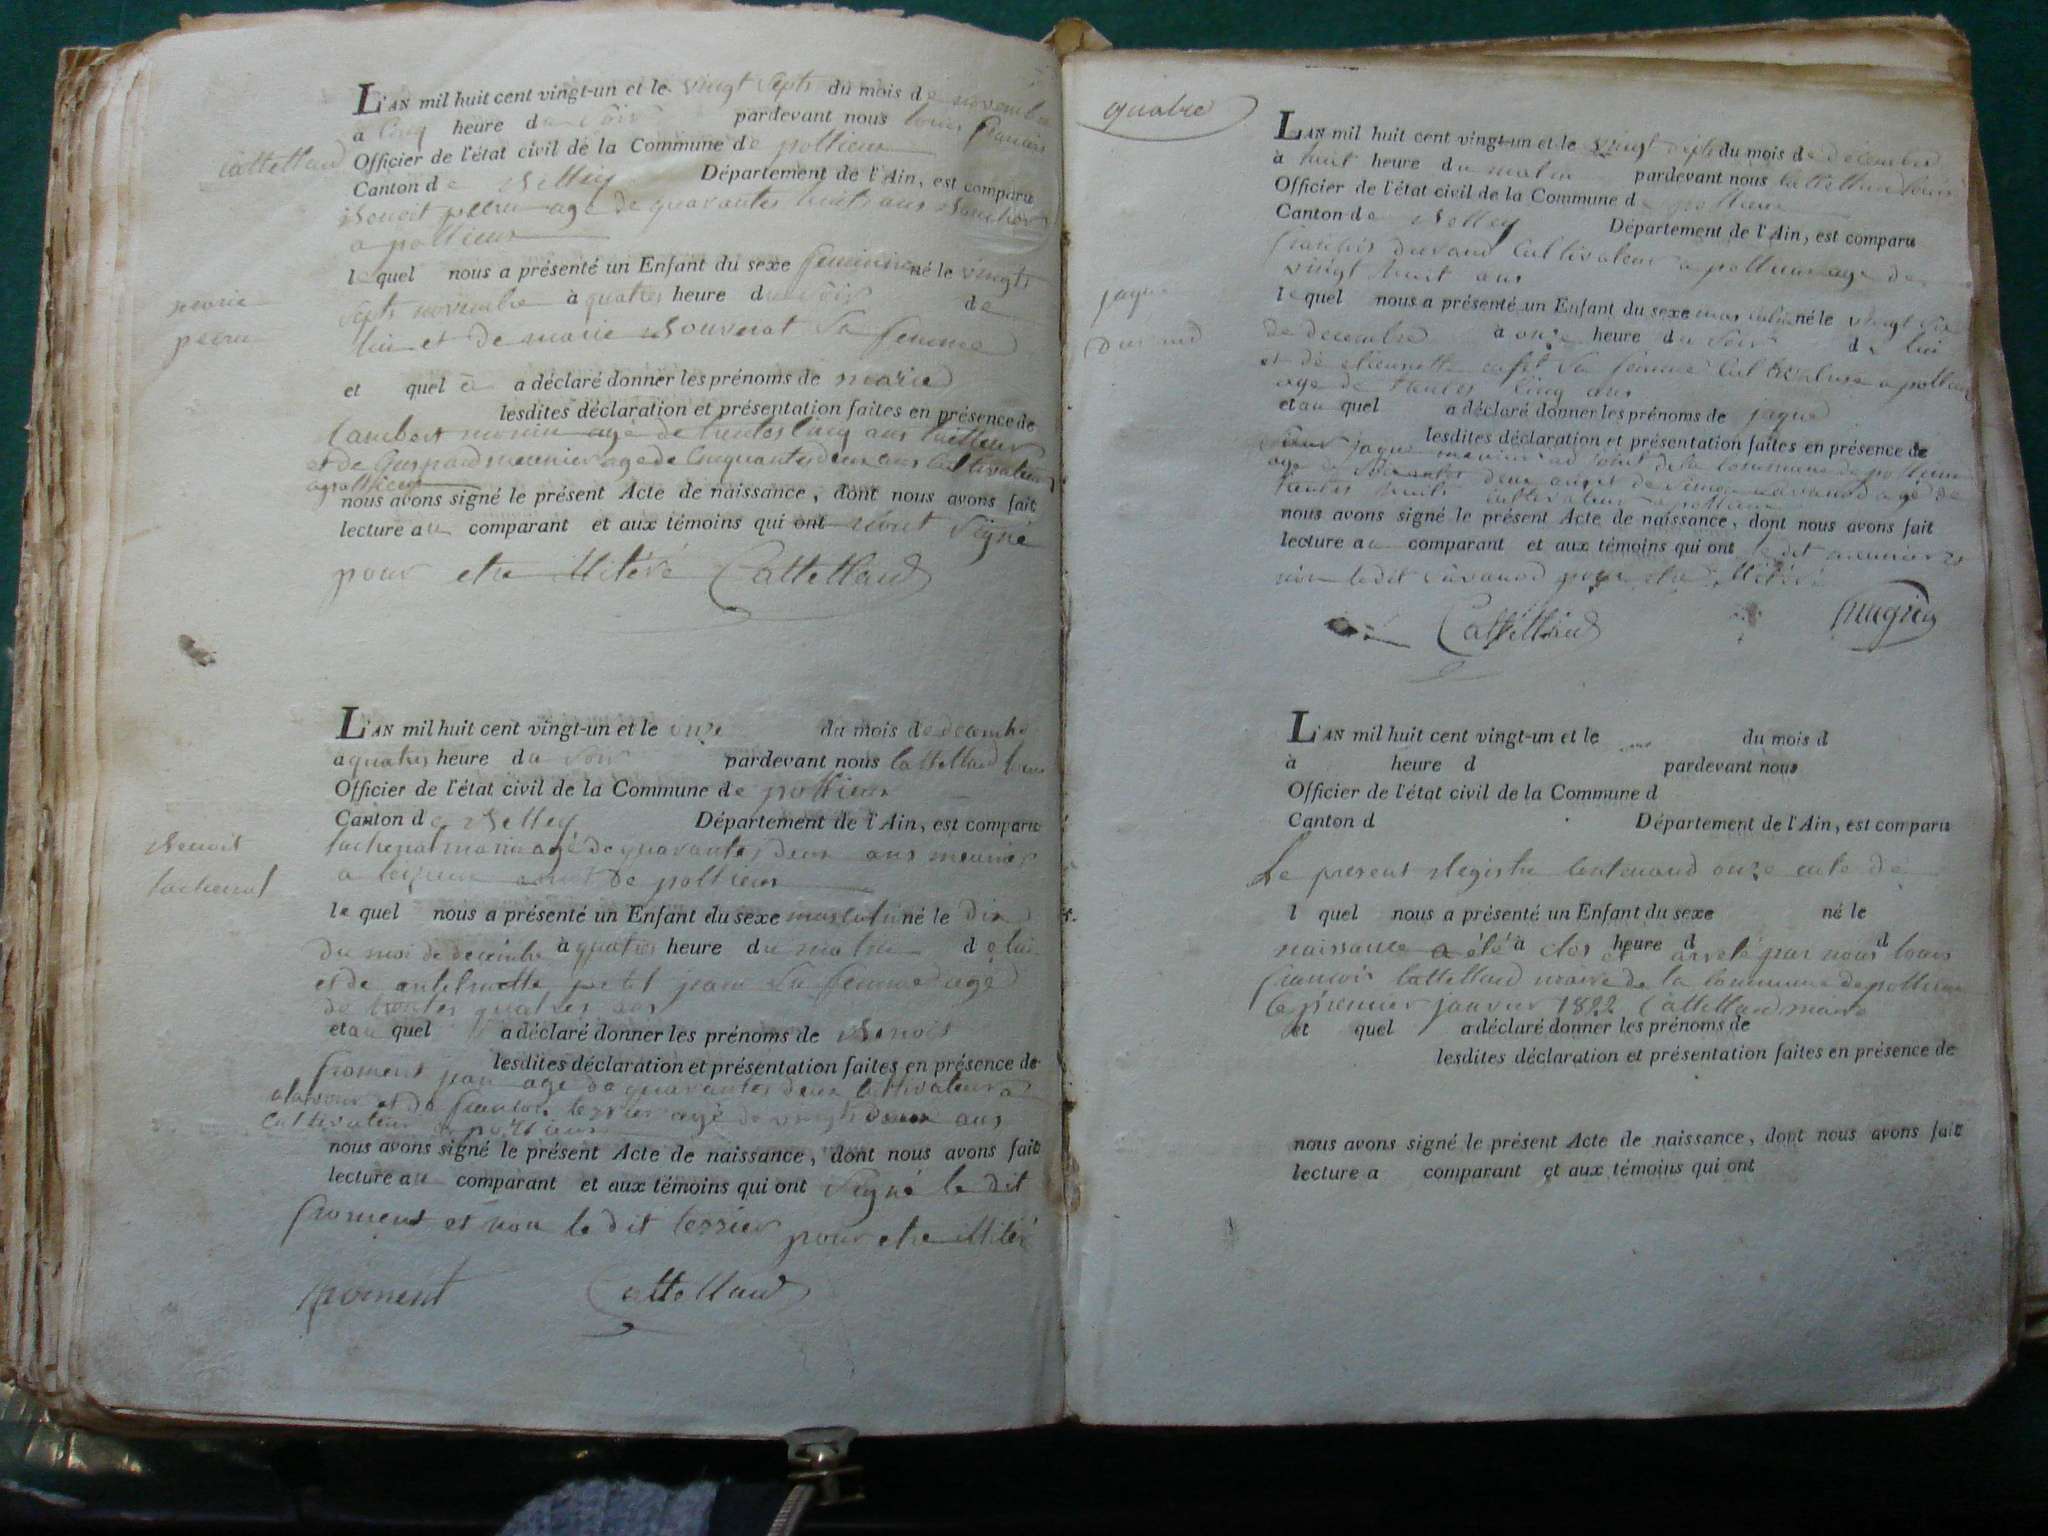 L'AN mil huit cent vingt-un et le vingt septs du mois de novembre
a cinq heure du soir pardevant nous louis francois
Cattelland Officier de l'état civil de la Commune de pollieux
Canton de Belley Département de l'Ain, est comparu
Benoit perru age de quarantes huits ans
a pollieux
le quel nous a présenté un Enfant du sexe feminin né le vingts
marie
perru
septs novembre à quatres heure du soir de
lui et de marie Bouverat Sa femme
et quel a déclaré donner les prénoms de marie
lesdites déclaration et présentation faites en présence de
Lambert monin agé de trentes cinq ans tailleur
et de Guspard meunier age de Cinquantes deux ans Cultivateur
a pollieux
nous avons signé le présent Acte de naissance, dont nous avons fait
lecture au comparant et aux témoins qui ont n'ont Signé
pour etre illitéré Cattelland
L'AN mil huit cent vingt-un et le onze du mois de decembre
a quatres heure du soir pardevant nous Cattelland louis
Officier de l'état civil de la Commune de pollieux
Canton de Belley Département de l'Ain, est comparu
Benoit
lachenal
lachenal agé de quarantes deux ans meunier
a de pollieux
le quel nous a présenté un Enfant du sexe masculin né le dix
du moi de decembre à quatres heure du matin de lui
et de antelmette petit jean Sa femme agé
de trentes quatres ans
et au quel a déclaré donner les prénoms de Benoit
lesdites déclaration et présentation faites en présence de
froment jean agé de quarantes deux Cultivateur a
et de francois terrier agé de vingts deux ans
Cultivateur a pollieux
nous avons signé le présent Acte de naissance, dont nous avons fait
lecture au comparant et aux témoins qui ont Signé le dit
froment et non le dit terrier pour etre illitéré
froment Cattelland
quatre
L'AN mil huit cent vingt-un et le vingt septs du mois de decembre
à huit heure du matin pardevant nous Cattelland louis
Officier de l'état civil de la Commune de pollieux
Canton de Belley Département de l'Ain, est comparu
francois durand Cultivateur a pollieux age de
vingt huit ans
jaque
Durand
le quel nous a présenté un Enfant du sexe masculin né le vingt six
de decembre à onze heure du soir de lui
et de etiennette Sa femme Cultivatrice a pollieux
age de trentes cinq ans
et au quel a déclaré donner les prénoms de jaque
lesdites déclaration et présentation faites en présence de
Sieur jaque meunier adjoint de la Commune de pollieux
age de deux ans et de agé de
trentes huits cultivateur a pollieux
nous avons signé le présent Acte de naissance, dont nous avons fait
lecture au comparant et aux témoins qui ont le dit meunier et
non le dit pour etre illitéré
Cattelland
L'AN mil huit cent vingt-un et le du mois d
à heure d pardevant nous
Officier de l'état civil de la Commune d
Canton d Département de l'Ain, est comparu
Le present Registre Contenand onze acte de
l quel nous a présenté un Enfant du sexe né le
à heure d d
naissance a été clos et arreté par nous louis
francois Cattelland maire de la Commune de pollieux
le premier janvier 1822 Cattelland maire
et quel a déclaré donner les prénoms de
lesdites déclaration et présentation faites en présence de
nous avons signé le présent Acte de naissance, dont nous avons fait
lecture a comparant et aux témoins qui ont